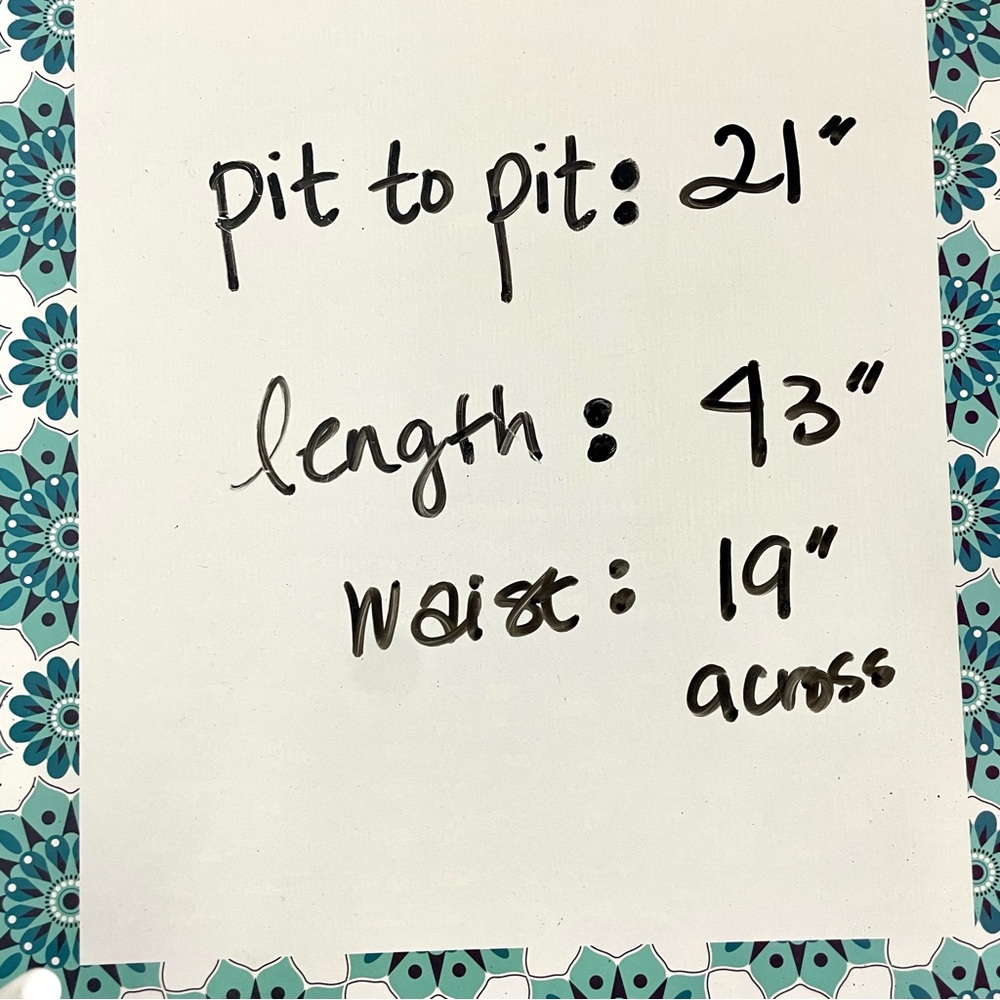 pit to pit: 21"
length: 43"
waist: 19"
across